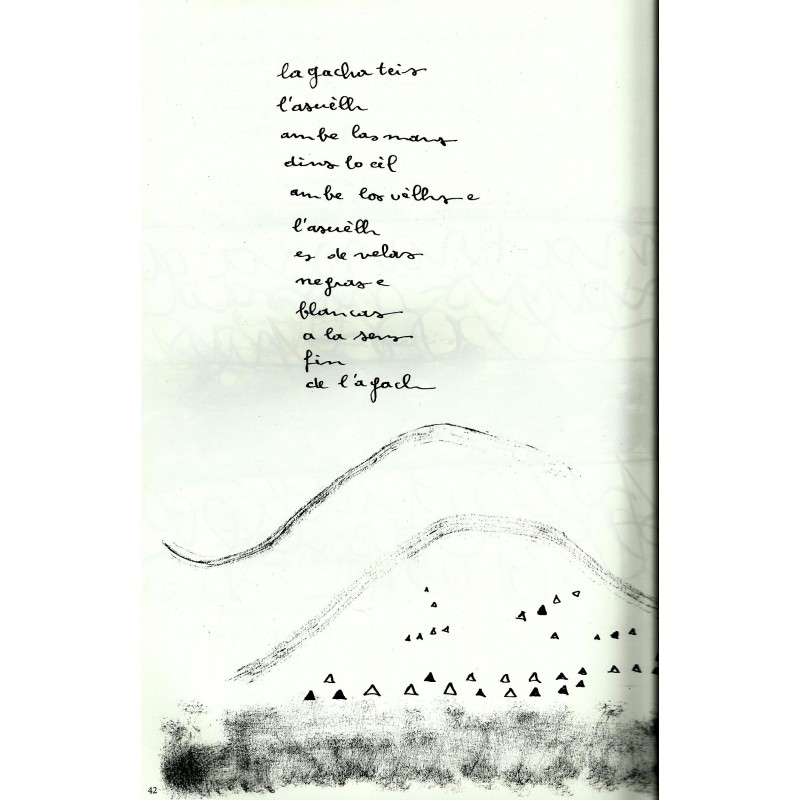 la gacha teis
l'asuèlh
ambe las mans
dins lo cèl
ambe los uèlhs e
l'asuèlh
es de velas
negras e
blancas
a la sens
fin
de l'agach
42